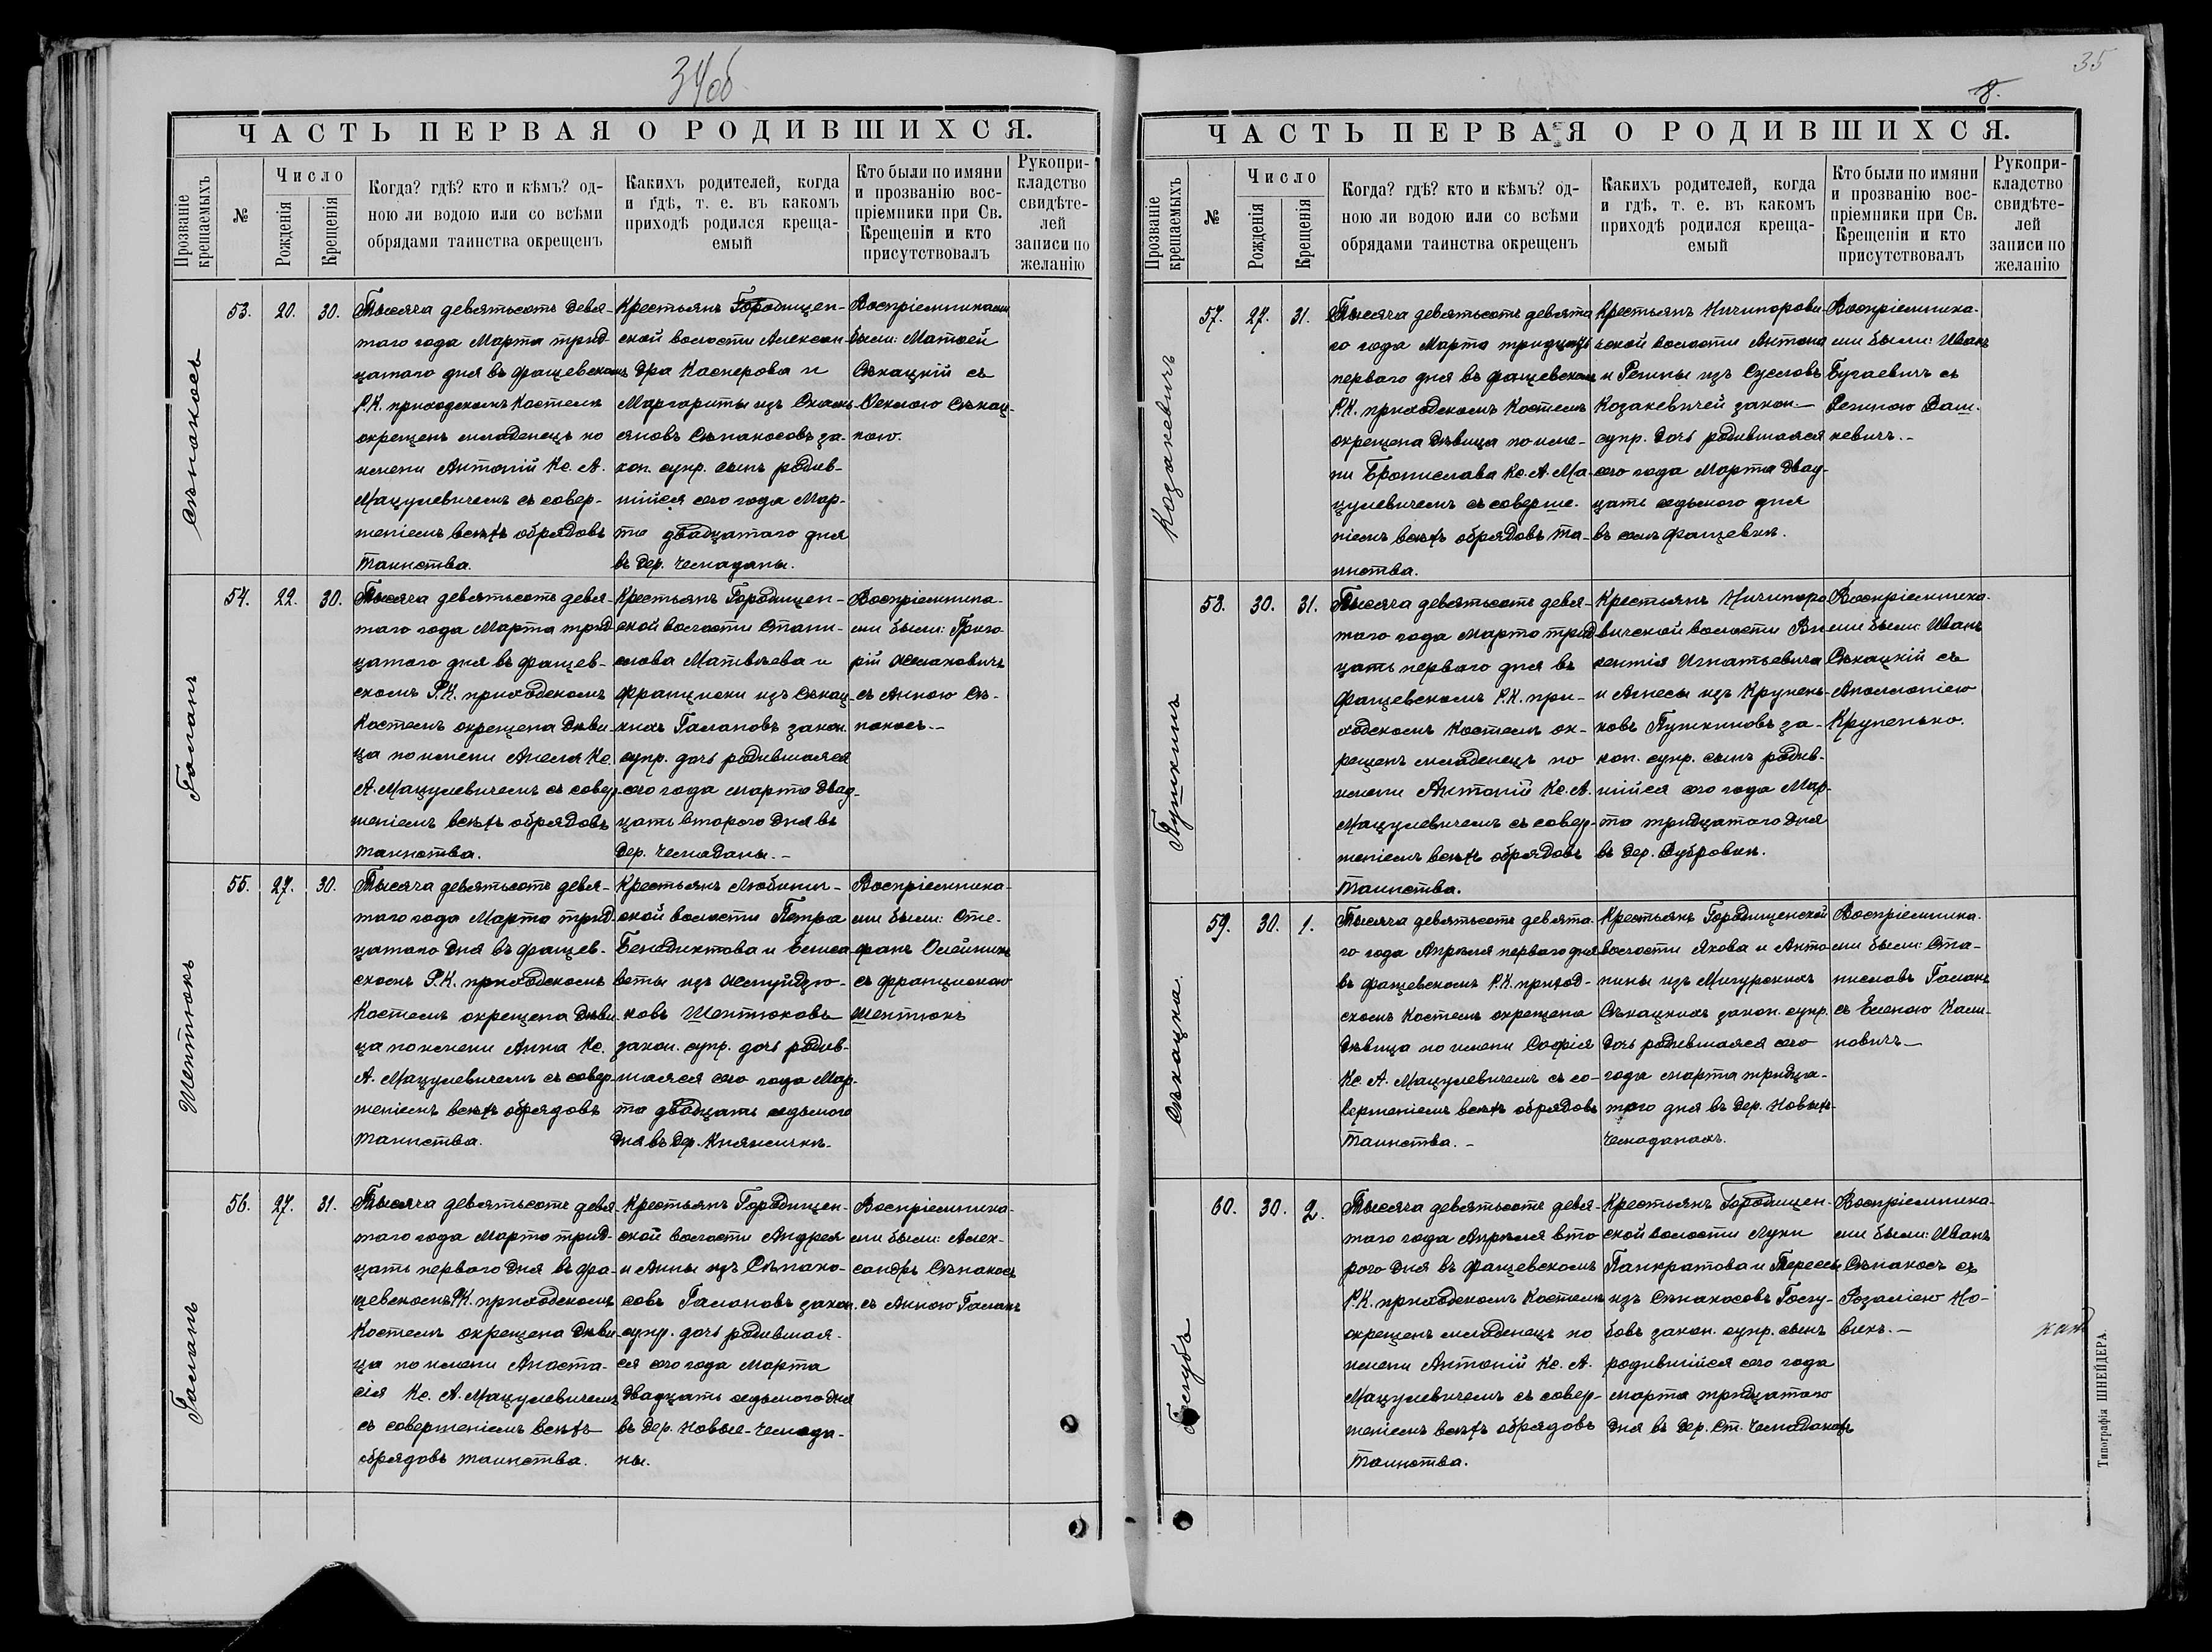 34об
ЧАСТЬ ПЕРВАЯ О РОДИВШИХСЯ.
Прозваніе крещаемыхъ
№
Число
Рожденія
Крещенія
Когда? гдѣ? кто и кѣмъ? од-
ною ли водою или со всѣми
обрядами таинства окрещенъ
Какихъ родителей, когда
и гдѣ, т. е. въ какомъ
приходѣ родился креща-
емый
Кто были по имяни
и прозванію вос-
пріемники при Св.
Крещеніи и кто
присутствовалъ
Рукопри-
кладство
свидѣте-
лей
записи по
желанію
Сѣнокосъ
53. 20. 30.
Тысяча девятьсотъ девя-
таго года Марта трид-
цатаго дня въ Фащевскомъ
Р.К. приходскомъ Костелѣ
окрещенъ младенецъ по
имени Антоній Кс. А.
Мацулевичемъ съ совер-
шеніемъ всѣхъ обрядовъ
таинства.
Крестьянъ Городищен-
ской волости Алексан-
дра Касперова и
Маргариты изъ
Сѣнокосовъ за-
кон. супр. сынъ родив-
шійся сего года Мар-
та двадцатаго дня
въ дер. Чемаданы.
Воспріемниками
были: Матвей
Сѣкацкій съ
Сѣкац-
кою.
Галанъ
54. 22. 30.
Тысяча девятьсотъ девя-
таго года Марта трид-
цатаго дня въ Фащев-
скомъ Р.К. приходскомъ
Костелѣ окрещена дѣви-
ца по имени Анеля Кс.
А. Мацулевичемъ съ совер-
шеніемъ всѣхъ обрядовъ
таинства.
Крестьянъ Городищен-
ской волости Стани-
слава Матвѣева и
Франциски изъ Сѣкац-
кихъ Галановъ закон.
супр. дочь родившаяся
сего года марта двад-
цать втораго дня въ
дер. Чемаданы.-
Воспріемника-
ми были: Григо-
рій Жмаковичъ
съ Анною Сѣ-
нокосъ.-
Шептюкъ
55. 27. 30.
Тысяча девятьсотъ девя-
таго года Марта трид-
цатаго дня въ Фащев-
скомъ Р.К. приходскомъ
Костелѣ окрещена дѣви-
ца по имени Анна Кс.
А. Мацулевичемъ съ совер-
шеніемъ всѣхъ обрядовъ
таинства.
Крестьянъ Любинич-
ской волости Петра
Бенедиктова и Елиса
веты изъ Жмуйдзю-
ковъ Шептюковъ
закон. супр. дочь родив-
шаяся сего года Мар-
та двадцать седьмого
дня въ дер. Княжичкѣ.
Воспріемника-
ми были: Сте-
фанъ Олейникъ
съ Францискою
Шептюкъ
Галанъ
56. 27. 31.
Тысяча девятьсотъ девя-
таго года Марта трид-
цать перваго дня въ Фа-
щевскомъ Р.К. приходскомъ
Костелѣ окрещена дѣви-
ца по имени Анаста-
сія Кс. А. Мацулевичемъ
съ совершеніемъ всѣхъ
обрядовъ таинства.
Крестьянъ Городищен-
ской волости Андрея
и Анны изъ Сѣноко-
совъ Галановъ закон.
супр. дочь родившая-
ся сего года Марта
двадцать седьмого дня
въ дер. Новые-Чемада-
ны.
Воспріемника-
ми были: Алек-
сандръ Сѣнокосъ
съ Анною Галанъ
35
8.
ЧАСТЬ ПЕРВАЯ О РОДИВШИХСЯ.
Прозваніе крещаемыхъ
№
Число
Рожденія
Крещенія
Когда? гдѣ? кто и кѣмъ? од-
ною ли водою или со всѣми
обрядами таинства окрещенъ
Какихъ родителей, когда
и гдѣ, т. е. въ какомъ
приходѣ родился креща-
емый
Кто были по имяни
и прозванію вос-
пріемники при Св.
Крещеніи и кто
присутствовалъ
Рукопри-
кладство
свидѣте-
лей
записи по
желанію
Козакевичъ
57. 27. 31.
Тысяча девятьсотъ девята
го года Марта тридцать
перваго дня въ Фащевскомъ
Р.К. приходскомъ Костелѣ
окрещена дѣвица по име-
ни Брониславa Кс. А. Ма-
цулевичемъ съ соверше-
ніемъ всѣхъ обрядовъ та-
инства.
Крестьянъ Ничипорови-
чской волости Антона
и Регины изъ Сусловъ
Козакевичей закон.-
супр. дочь родившаяся
сего года Марта двад-
цать седьмого дня
въ селѣ Фащевкѣ.
Воспріемника-
ми были: Иванъ
Бугаевичъ съ
Региною Ваш-
кевичъ.-
Пушкинъ
58. 30. 31.
Тысяча девятьсотъ девя-
таго года Марта трид-
цать перваго дня въ
Фащевскомъ Р.К. при-
ходскомъ Костелѣ ок-
рещенъ младенецъ по
имени Антоній Кс. А.
Мацулевичемъ съ совер-
шеніемъ всѣхъ обрядовъ
таинства.
Крестьянъ Ничипоро
вичской волости Вин
кентія Игнатьевича
и Агнесы изъ Крупень-
ковъ Пушкиновъ за-
кон. супр. сынъ родив-
шійся сего года Мар-
та тридцатаго дня
въ дер. Дубровкѣ.
Воспріемника-
ми были: Иванъ
Сѣкацкій съ
Аполлоніею
Крупенько.
Сѣкацка.
59. 30. 1.
Тысяча девятьсотъ девята-
го года Апрѣля перваго дня
въ Фащевскомъ Р.К. приход-
скомъ Костелѣ окрещена
дѣвица по имени Софія
Кс. А. Мацулевичемъ съ со-
вершеніемъ всѣхъ обрядовъ
таинства.-
Крестьянъ Городищенской
волости Якова и Анто-
нины изъ Мигурскихъ
Сѣкацкихъ закон. супр.
дочь родившаяся сего
года марта тридца-
таго дня въ дер. Новыхъ-
Чемаданахъ.
Воспріемника-
ми были: Ста-
ниславъ Галанъ
съ Еленою Кали-
новичъ-
Голубъ
60. 30. 2.
Тысяча девятьсотъ девя-
таго года Апрѣля вто-
рого дня въ Фащевскомъ
Р.К. приходскомъ Костелѣ
окрещенъ младенецъ по
имени Антоній Кс. А.
Мацулевичемъ съ совер-
шеніемъ всѣхъ обрядовъ
таинства.
Крестьянъ Городищен-
ской волости Луки
Панкратова и Тересы
изъ Сѣнокосовъ Голу-
бовъ закон. супр. сынъ
родившійся сего года
марта тридцатаго
дня въ дер. Ст. Чемаданахъ
Воспріемника-
ми были: Иванъ
Сѣнокосъ съ
Розаліею Но-
викъ.-
Типографія ШНЕЙДЕРА.